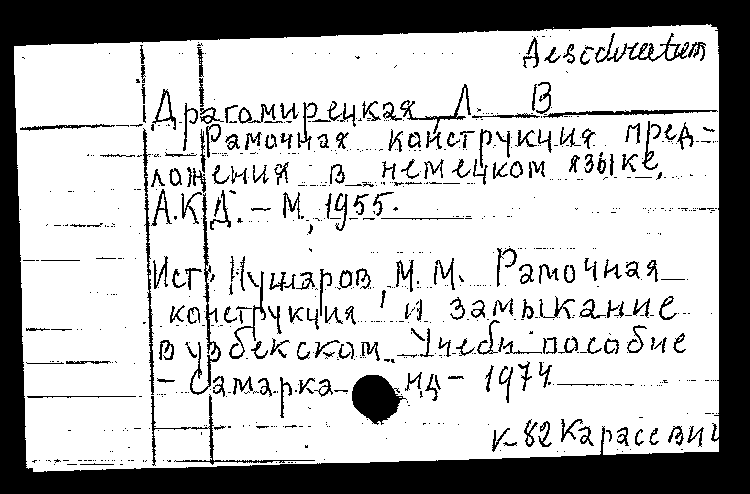 Desideratum
Драгомирецкая, Л. В
Рамочная конструкция пред-
ложения в немецком языке.
А.К.Д. – М, 1955.
Ист: Нушаров, М.М. Рамочная
конструкция и замыкание
в узбекском. Учебн пособие
– Самарка нд – 1974
к-82 Карасевич